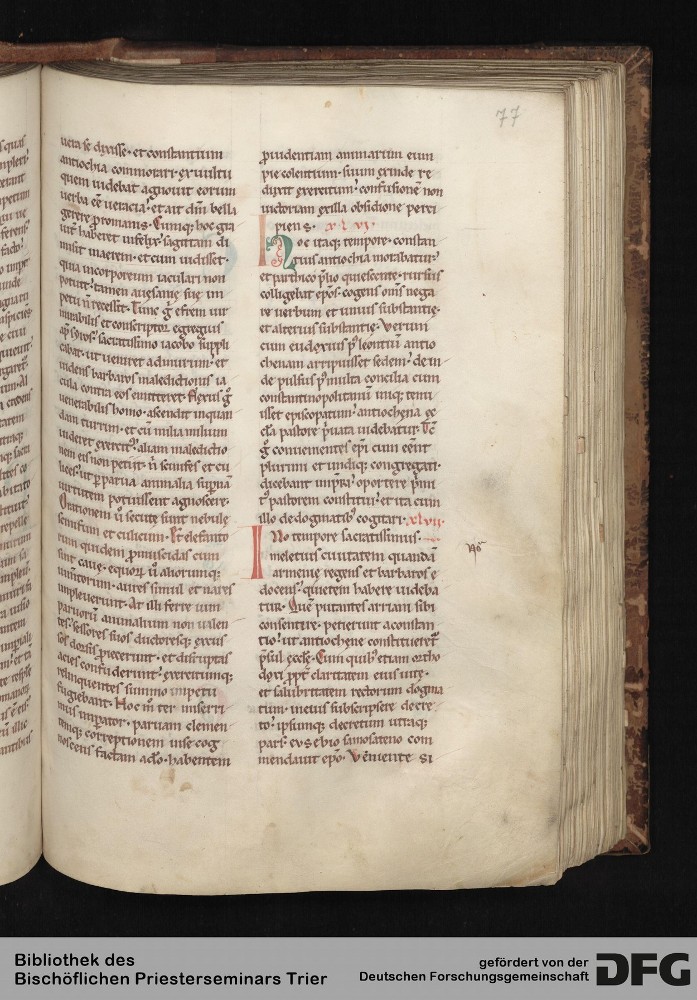 77
uera se dixisse · et constantium
antiochia commorari · ex uultu
quem uidebat agnouit eorum
uerba eē ueracia · et ait dn̄m bella
gerere ꝓ romanis · Cumq; hoc gra
uit haberet infelix · sagittam di
misit in aerem · et cum uidisset
quia incorporeum iaculari non
potuit · tamen
petu n̄ recessit · Tunc g̊ efrem uir
mirabilis et conscriptor egregius
sacratissimo iacobo suppli
cabat · ut ueniret ad murum · et
uidens barbaros maledictionis ia
cula contra eos emitteret · flexus g̊
uenerabilis homo · ascendit in quan
dam turrim · et cū milia milium
uideret exercitꝰ · aliam maledictio
nem eis non petiit · n̄ scinifes et cu
lices · ut ꝑ parua animalia supnā
uirtutem potuissent agnoscere ·
Orationem ū secute sunt nebule
scinifum et culicum · Et elefanto
rum quidem ꝓmuscidas cum
sint caue · equorū ū aliorumq;
iumtorum · aures simul et nares
impleuerunt · At illi ferre uim
paruorū animalium non ualen
tes · sessores suos ductoresq; excus
sos dorsis ꝓiecerunt · et disruptis
acies confuderunt · exercitumq;
relinquentes summo impetu
fugiebant · Hoc m̄ ter miserri
mus imperator · paruam clemen
temq; correptionem in se cog
noscens factam a dō · habentem
ꝓuidentiam animarum eum
pie colentium · suum exinde re
duxit exercitum · confusionē non
uictoriam ex illa obsidione perci
piens · xlvi ·
Hoc itaq; tempore · constan
tius antiochia morabatur
et parthico ꝑiclo quiescente · rursus
colligebat epōs · cogens om̄s nega
re uerbum et unius substantię ·
et alterius substantię · Verum
cum eudoxius p̄ leontiū antio
chenam arripuisset sedem · dein
de pulsus p̄ multa concilia cum
constantinopolitanū iniq; tenu
isset episcopatum · antiochena ęc
clā pastore ꝓuata uidebatur · Tc̄
g̊ conuenientes ep̄i cum eēnt
plurimi et undiq; congregati ·
dicebant inprimis oportere p̄mi
tꝰ pastorem constitui · et ita cum
illo de dogmatibꝰ cogitari · xlvii ·
Ilo tempore sacratissimus
meletius ciuitatem quandā
armenię regens et barbaros e
docens · quietem habere uideba
tur · Quē putantes arriani sibi
consentire · petierunt a constan
tio · ut antiochene constitueretꝰ
p̄sul eccłe · Cum quibꝰ etiam ortho
doxi ꝓpt̄ claritatem eius uitę ·
et salubritatem rectorum dogma
tum · metus subscripsere decre
to · ipsumq; decretum utraq;
pars · eusebio samosateno com
mendauit ep̄o · Veniente si
Bibliothek des
Bischöflichen Priesterseminars Trier
gefördert von der
Deutschen Forschungsgemeinschaft
DFG